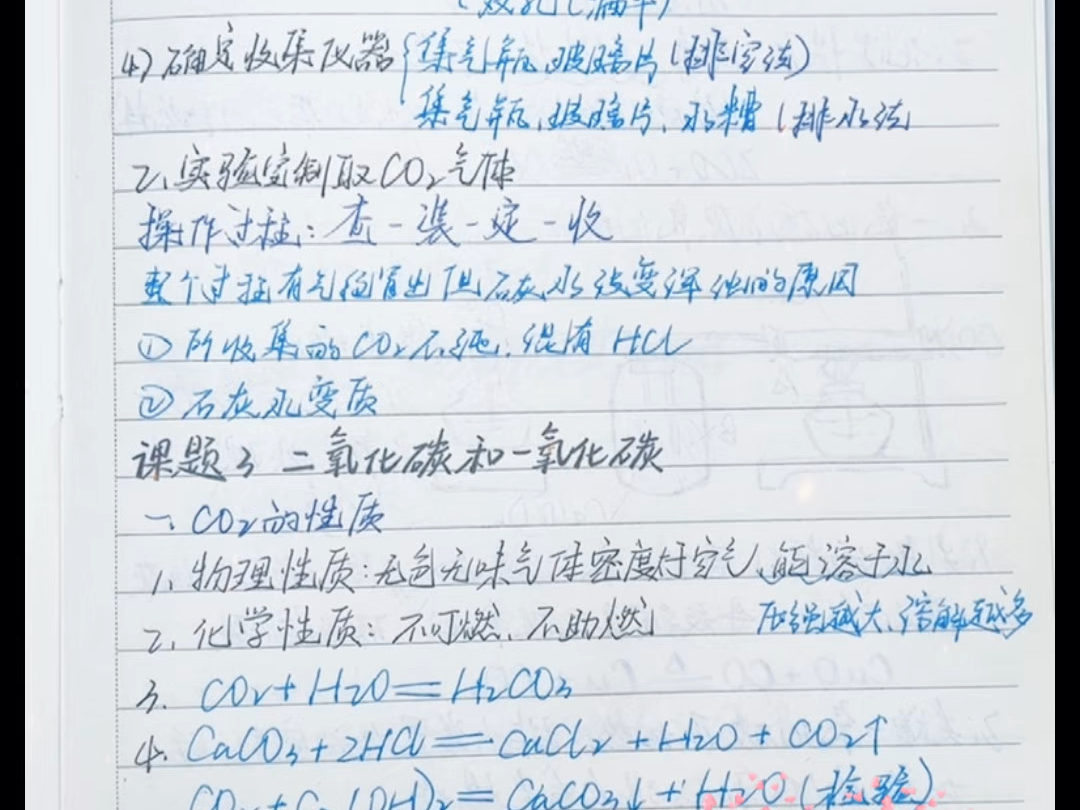 (双孔(漏斗)
4) 确定收集仪器{集气瓶、玻璃片(排空法)
集气瓶、玻璃片、水槽(排水法
2、实验室制取CO₂气体
操作过程:查-装-定-收
整个过程有气泡冒出但石灰水没变浑浊的原因
① 所收集的CO₂不纯、混有HCl
② 石灰水变质
课题3 二氧化碳和一氧化碳
一、CO₂的性质
1、物理性质:无色无味气体密度大于空气、能溶于水
2、化学性质:不可燃、不助燃 压强越大、溶解越多
3. CO₂+H₂O=H₂CO₃
4. CaCO₃+2HCl=CaCl₂+H₂O+CO₂↑
CO₂+Ca(OH)₂=CaCO₃↓+H₂O(检验)